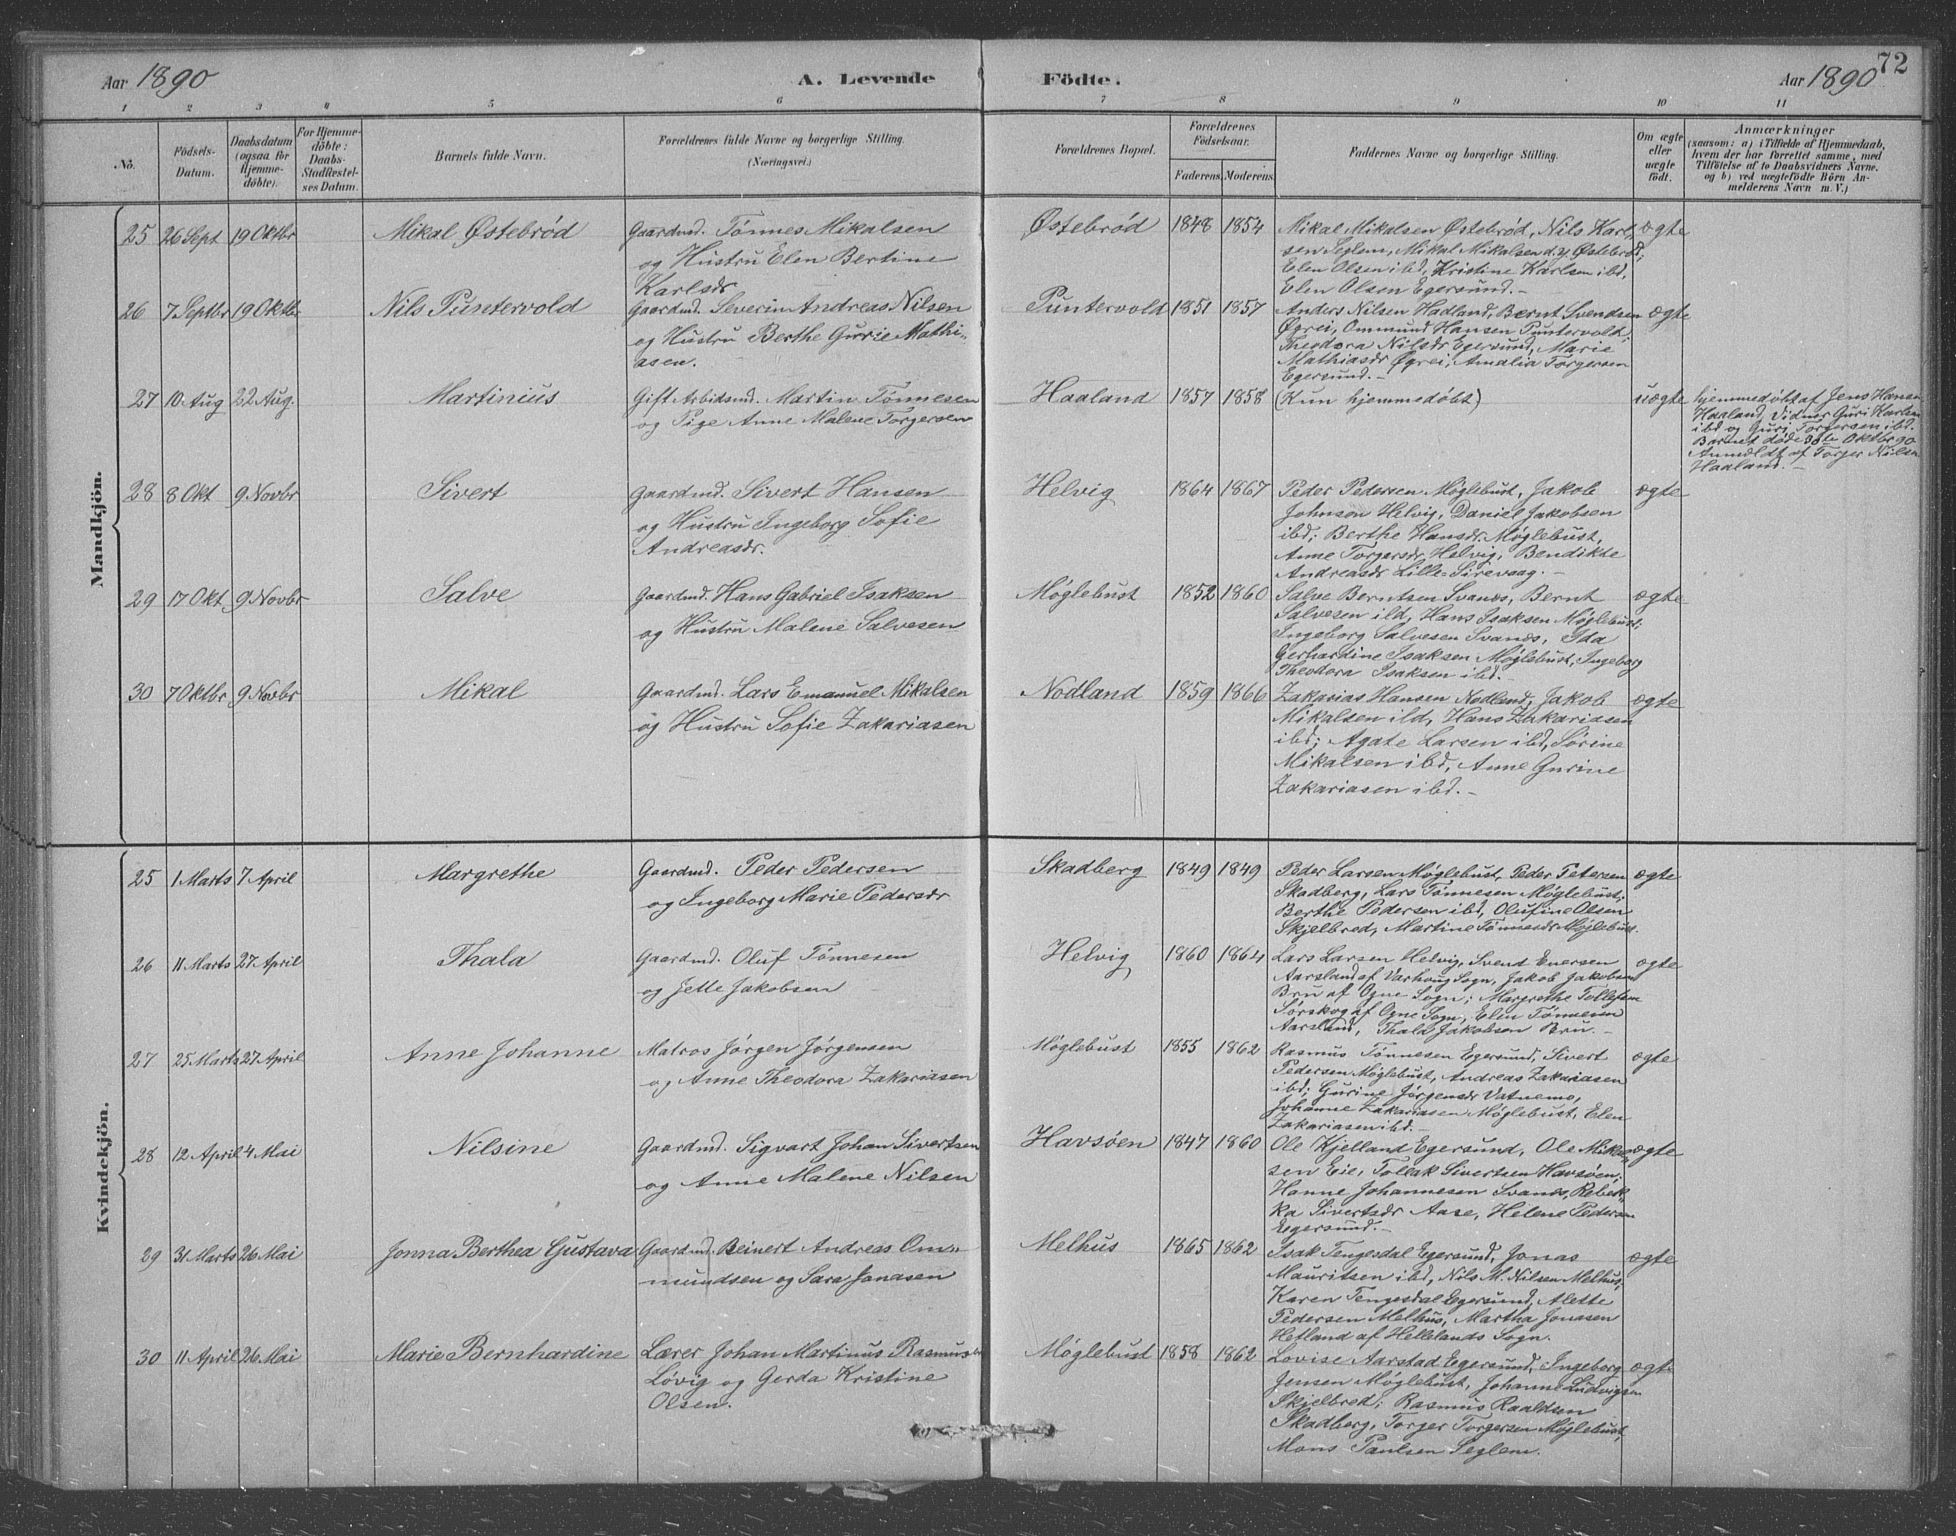 72
Aar 1890 A. Levende Födte. Aar 1890
1 2 3 4 5 6 7 8 9 10 11
No.
Födsels-Datum.
Daabsdatum (ogsaa for Hjemme-döbte).
For Hjemme-döbte: Daabs-Stadfæstel-ses Datum.
Barnets fulde Navn.
Forældrenes fulde Navne og borgerlige Stilling.
(Næringsvei.)
Forældrenes Bopæl.
Forældrenes Födselsaar.
Faderens. Moderens.
Faddernes Navne og borgerlige Stilling.
Om ægte eller uægte født.
Anmærkninger
(saasom: a) i Tilfælde af Hjemmedaab,
hvem der har forrettet samme, med
Tilföielse af to Daabsvidners Navne.
og b) ved uægtefödte Börn An-
melderens Navn m. V.)
Mandkjön.
25 26 Sept 19 Oktbr Mikal Østebrød
Gaardmd. Tønnes Mikalsen
og Hustru Elen Bertine
Karlsdr
Østebrød 1848 1854
Mikal Mikalsen Østebrød, Nils Karl-
sen Seglem, Mikal Mikalsen d.y. Østebrød;
Elen Olsen ibd, Kristine Karlsen ibd,
Elen Olsen Egersund.-
ægte
26 7 Septbr 19 Oktbr Nils Puntervold
Gaardmd. Severin Andreas Nilsen
og Hustru Berthe Gurie Mathi-
asen.
Puntervold 1851 1857
Anders Nilsen Hadland, Bernt Svendsen
Øgrei, Ommund Hansen Puntervold;
Theodora Nilsdr Egersund, Marie
Mathiasdr Øgrei, Amalia Torgersen
Egersund.-
ægte
27 10 Aug 22 Aug. Martinius
Gift Arbidsmd. Martin Tønnesen
og Pige Anne Malene Torgersen
Haaland 1857 1858 (Kun hjemmedøbt) uægte
hjemmedøbt af Jens Hansen
Haaland, Vidner Guri Karlsen
ibd og Guri Torgersen ibd.
Barnet døde 30te Oktbr 90
Anmeldt af Torger Nilsen
Haaland.-
28 8 Okt 9 Novbr Sivert
Gaardmd. Sivert Hansen
og Hustru Ingeborg Sofie
Andreasdr.
Helvig 1864 1867
Peder Pedersen Møglebust, Jakob
Johnsen Helvig, Daniel Jakobsen
ibd; Berthe Hansdr Møglebust,
Anne Torgersdr Helvig, Bendikte
Andreasdr Lille-Sirevaag.-
ægte
29 17 Okt 9 Novbr Salve
Gaardmd. Hans Gabriel Isaksen
og Hustru Malene Salvesen
Møglebust 1852 1860
Salve Berntsen Svanes, Bernt
Salvesen ibd, Hans Isaksen Møglebust;
Ingeborg Salvesen Svanes, Ida
Gerhardine Isaksen Møglebust, Ingeborg
Theodora Isaksen ibd.-
ægte
30 7 Oktbr 9 Novbr Mikal
Gaardmd. Lars Emanuel Mikalsen
og Hustru Sofie Zakariasen
Nodland 1859 1866
Zakarias Hansen Nodland, Jakob
Mikalsen ibd, Hans Zakariasen
ibd; Agate Larsen ibd, Sørine
Mikalsen ibd, Anne Gurine
Zakariasen ibd.-
ægte
Kvindekjön.
25 1 Marts 7 April Margrethe
Gaardmd. Peder Pedersen
og Ingeborg Marie Pedersdr
Skadberg 1849 1849
Peder Larsen Møglebust, Peder Petersen
Skadberg, Lars Tønnesen Møglebust;
Berthe Pedersen ibd, Olufine Olsen
Skjelbred, Martine Tønnesdr Møglebust.
ægte
26 11 Marts 27 April Thala
Gaardmd. Oluf Tønnesen
og Jette Jakobsen
Helvig 1860 1864
Lars Larsen Helvig, Svend Enersen
Aarsland af Varhoug Sogn, Jakob Jakobsen
Bru af Ogne Sogn; Margrethe Tollefsen
Sørskog af Ogne Sogn, Elen Tønnesen
Aarsland, Thala Jakobsen Bru.-
ægte
27 25 Marts 27 April Anne Johanne
Matros Jørgen Jørgensen
og Anne Theodora Zakariasen
Møglebust 1855 1862
Rasmus Tønnesen Egersund, Sivert
Pedersen Møglebust, Andreas Zakariasen
ibd; Gurine Jørgensdr Vatnemo,
Johanne Zakariasen Møglebust, Elen
Zakariasen ibd.-
ægte
28 12 April 4 Mai Nilsine
Gaardmd. Sigvart Johan Sivertsen
og Anne Malene Nilsen
Havsøen 1847 1860
Ole Kjelland Egersund, Ole Mikal-
sen Eie, Tollak Sivertsen Havsøen;
Hanne Johannesen Svanes, Rebek-
ka Sivertsdr Aase, Helene Pedersen
Egersund.-
ægte
29 31 Marts 26 Mai Jonna Berthea Gustava
Gaardmd. Reinert Andreas Om-
mundsen og Sara Jonasen
Melhus 1865 1862
Isak Tengesdal Egersund, Jonas
Mauritsen ibd, Nils M. Nilsen Melhus;
Karen Tengesdal Egersund, Alette
Pedersen Melhus, Martha Jonasen
Hetland af Hellelands Sogn.
ægte
30 11 April 26 Mai Marie Bernhardine
Lærer Johan Martinus Rasmusen
Løvig og Gerda Kristine
Olsen.
Møglebust 1858 1862
Lovise Aarstad Egersund, Ingeborg
Jensen Møglebust, Johanne Ludvigsen
Skjelbred; Rasmus Roaldsen
Skadberg, Torger Torgersen Møglebust,
Mons Paulsen Seglem.
ægte